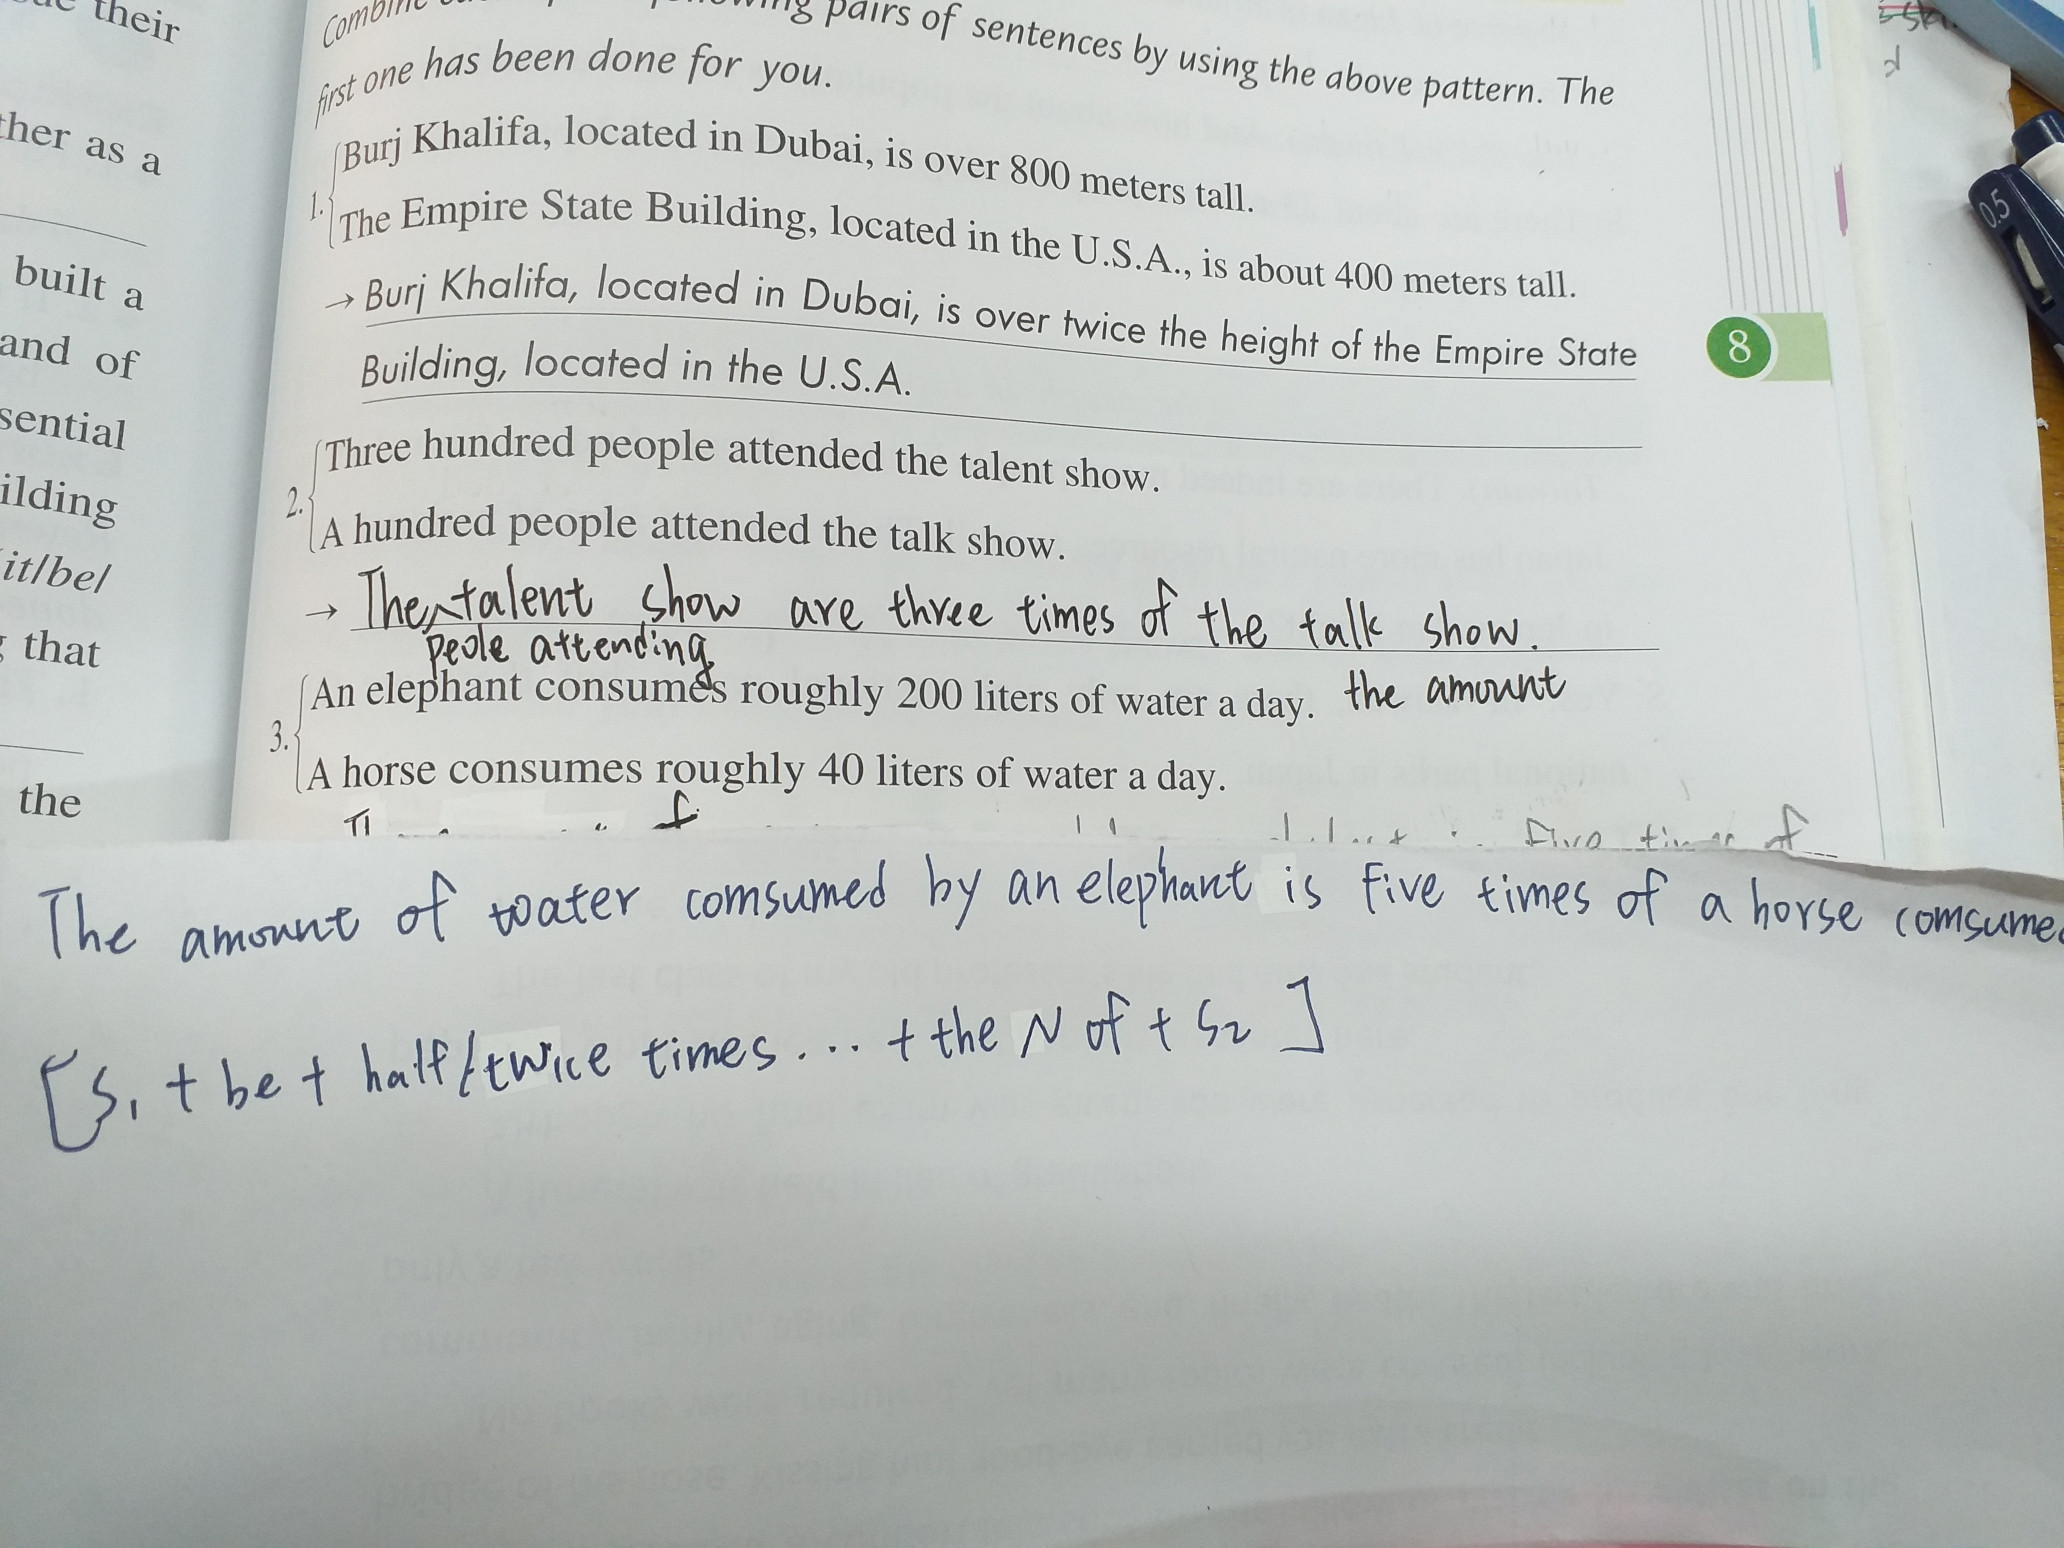 their
ther as a
built a
and of
sential
ilding
it/be/
that
the
pairs of sentences by using the above pattern. The
first one has been done for you.
1. Burj Khalifa, located in Dubai, is over 800 meters tall.
The Empire State Building, located in the U.S.A., is about 400 meters tall.
→ Burj Khalifa, located in Dubai, is over twice the height of the Empire State
Building, located in the U.S.A.
8
2. Three hundred people attended the talent show.
A hundred people attended the talk show.
→ The talent show are three times of the talk show.
peole attending
3. An elephant consumes roughly 200 liters of water a day. the amount
A horse consumes roughly 40 liters of water a day.
Five times of
The amount of water comsumed by an elephant is five times of a horse comsumed
[S1 + be + half/twice times... + the N of + S2]
0.5